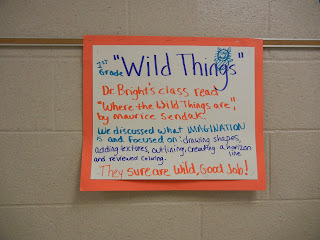 1st Grade "Wild Things"
Dr. Bright's class read
"Where the Wild Things are",
by Maurice Sendak.
We discussed what IMAGINATION
is and focused on: drawing shapes,
adding textures, outlining, creating a horizon line
and reviewed coloring.
They sure are wild, Good Job!